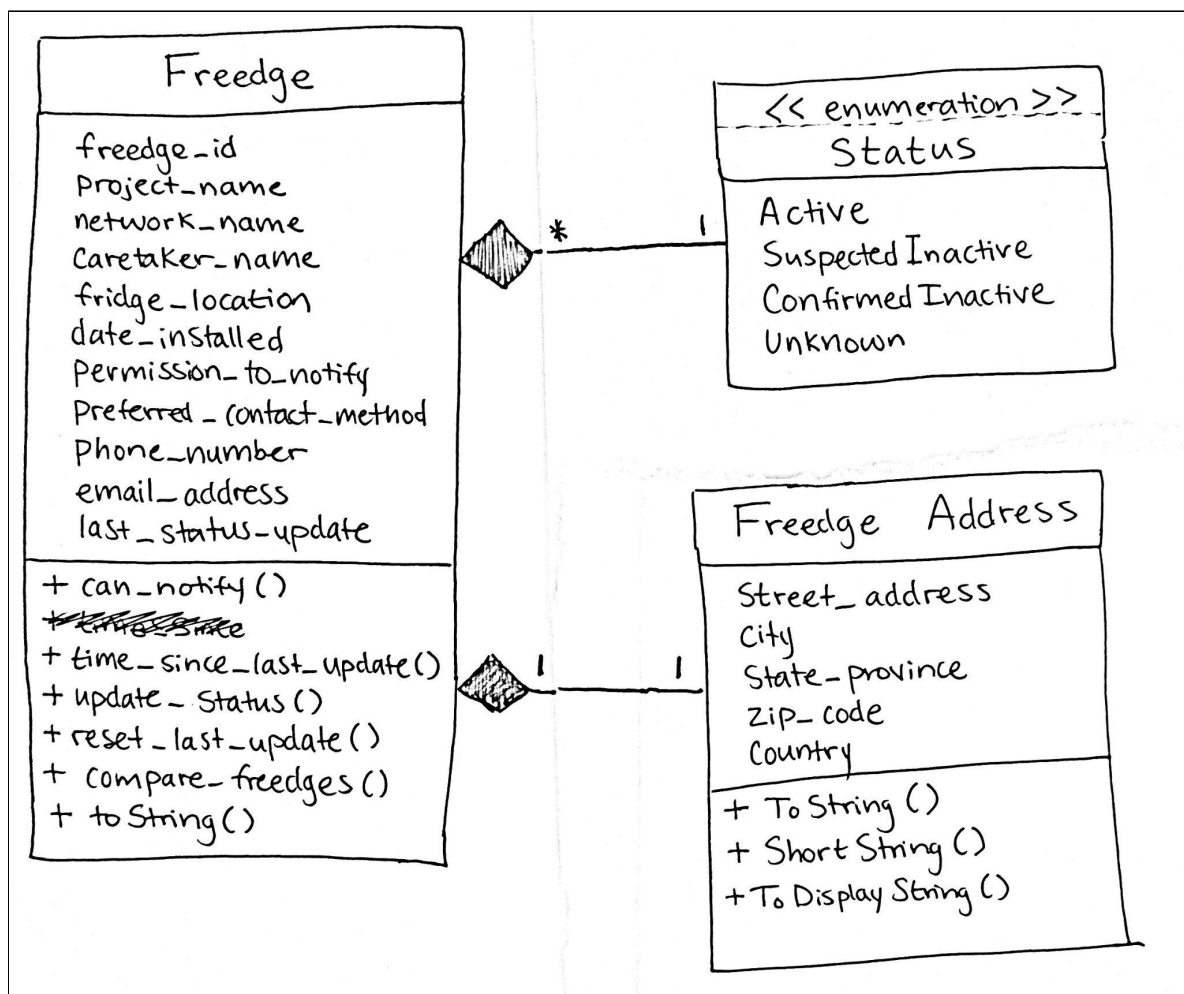 Freedge
freedge_id
Project_name
network_name
Caretaker_name
fridge_location
date_installed
Permission_to_notify
Preferred_contact_method
Phone_number
email_address
last_status_update
+ can_notify()
+ time_since
+ time_since_last_update()
+ update_Status()
+ reset_last_update()
+ compare_freedges()
+ toString()
* 1
1 1
<< enumeration >>
Status
Active
Suspected Inactive
Confirmed Inactive
Unknown
Freedge Address
Street_address
City
State_province
Zip_code
Country
+ To String ()
+ Short String ()
+ To Display String ()